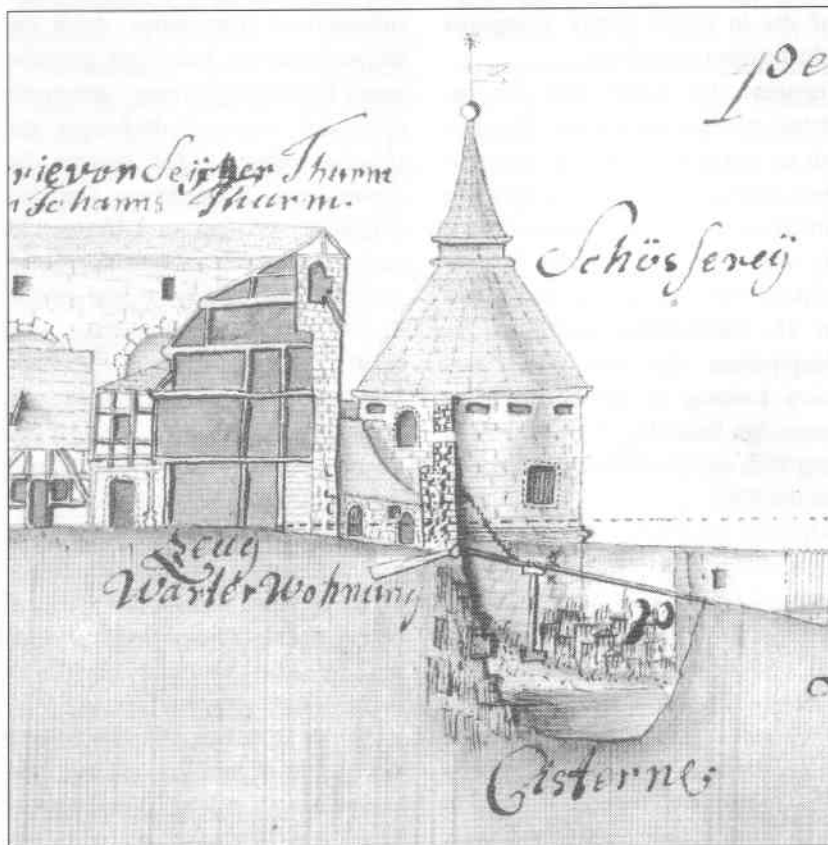 pe
rie von Seijcher Thurm
n Johanns Thurm.
Schössereÿ
Zeug
Warter Wohnung
Cisterne;